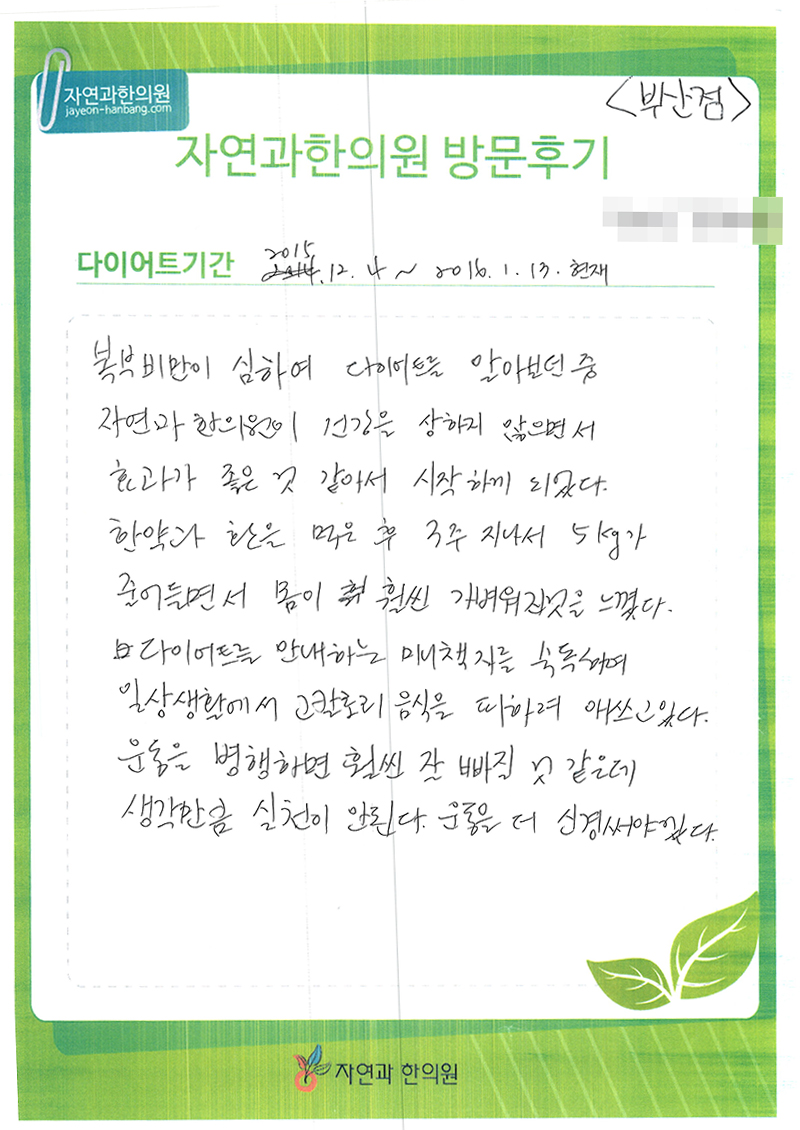 자연과한의원
jayeon-hanbang.com
<부산점>
자연과한의원 방문후기
다이어트기간 2015.12.4 ~ 2016.1.13. 현재
복부비만이 심하여 다이어트를 알아보던 중
자연과 한의원이 건강을 상하지 않으면서
효과가 좋은 것 같아서 시작하게 되었다.
한약과 환을 먹은 후 3주 지나서 5kg가
줄어들면서 몸이 훨씬 가벼워진것을 느꼈다.
다이어트를 안내하는 미니책자를 숙독하며
일상생활에서 고칼로리 음식을 피하려 애쓰고있다.
운동을 병행하면 훨씬 잘 빠질 것 같은데
생각만큼 실천이 안된다. 운동을 더 신경써야겠다.
자연과 한의원